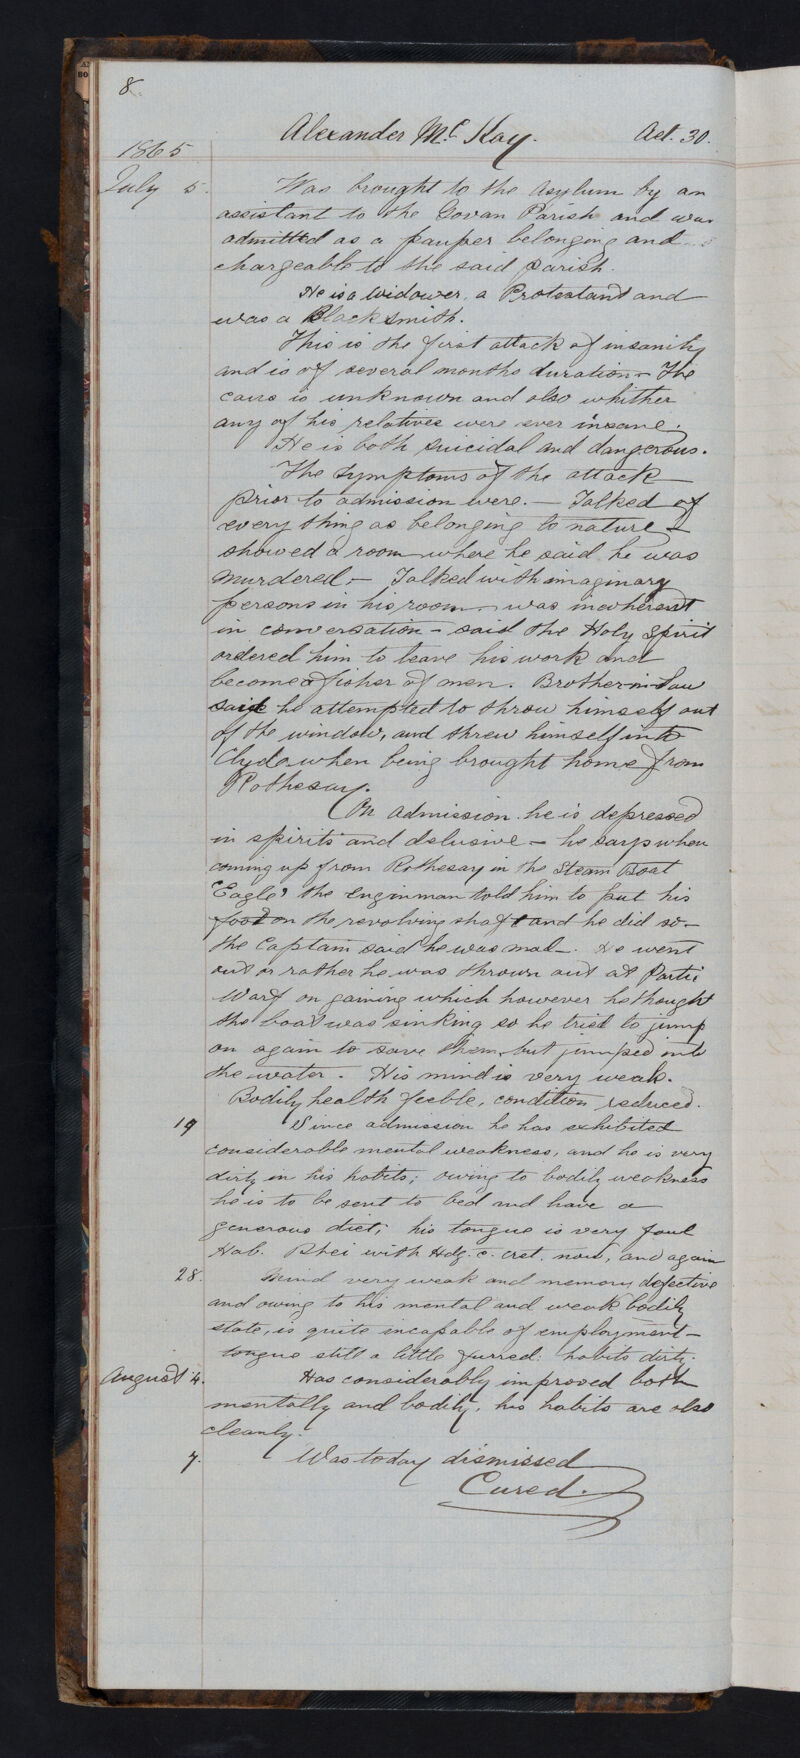 8.
Alexander Mc Kay. Aet. 30.
1865
July 5. Was brought to the Asylum by an
assistant to the Govan Parish and was
admitted as a pauper belonging and
chargeable to the said parish.
He is a Widower, a Protestant and
was a Blacksmith.
This is the first attack of insanity
and is of several months duration – The
caus is unknown and also whither
any of his relatives were ever insane.
He is both suicidal and dangerous.
The symptoms of the attack
prior to admission were. – Talked of
every thing as belonging to nature –
showed a room where he said he was
murdered – Talked with imaginary
persons in his room – was incoherent
in conversation – said the Holy Spirit
ordered him to leave his work and
become a fisher of men. Brother-in-law
said he attempted to throw himself out
of the window, and threw himself into
Clyde when being brought home from
Rothesay.
On admission he is depressed
in spirits and delusive – he says when
coming up from Rothesay in the Steam Boat
"Eagle" the enginman told him to put his
foot on the revolving shaft and he did so –
the Captain said he was mad –. He went
out or rather he was thrown out at
Warf on gaining which however he thought
the boat was sinking so he tried to jump
on again to save them, but jumped into
the water. His mind is very weak.
Bodily health feeble, condition reduced.
19 Since admission he has exhibited
considerable mental weakness, and he is very
dirty in his habits; owing to bodily weakness
he is to be sent to bed and have a
generous diet; his tongue is very foul
Hab. Rhei with Hdg. c. cret. now, and again
28. Mind very weak and memory defective
and owing to his mental and weak bodily
state, is quite incapable of employment –
tongue still a little furred: habits dirty.
August 4. Has considerably improved both
mentally and bodily, his habits are also
cleanly.
7. Was today dismissed
Cured.